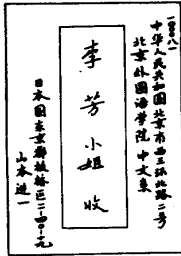 一〇〇〇八一
中华人民共和国北京市西三环北路二号
北京外国语学院 中文系
李芳小姐 收
日本国东京都板桥区二-四〇-十九
山本进一